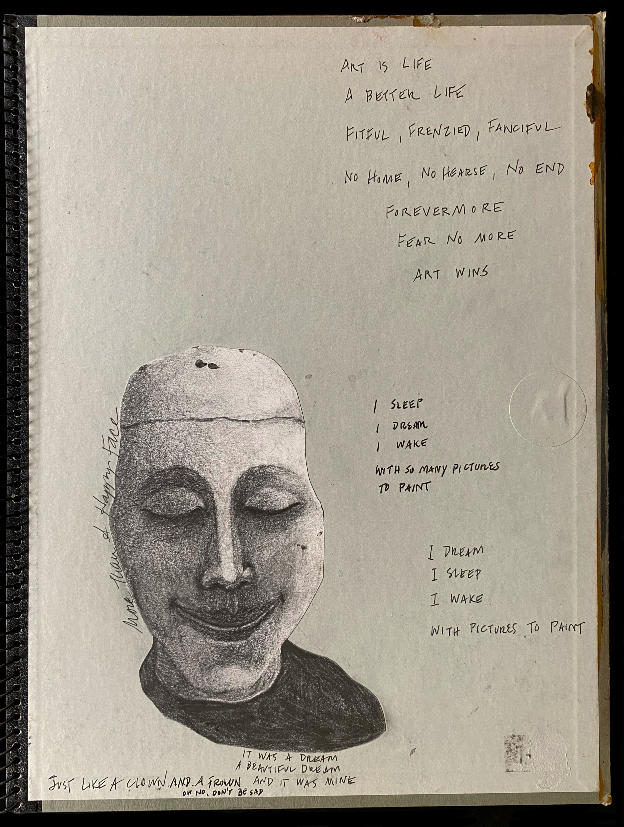 ART IS LIFE
A BETTER LIFE
FITFUL, FRENZIED, FANCIFUL
NO HOME, NO HEARSE, NO END
FOREVERMORE
FEAR NO MORE
ART WINS
I SLEEP
I DREAM
I WAKE
WITH SO MANY PICTURES
TO PAINT
More Than A Happy Face
I DREAM
I SLEEP
I WAKE
WITH PICTURES TO PAINT
IT WAS A DREAM
A BEAUTIFUL DREAM
JUST LIKE A CLOWN AND A FROWN AND IT WAS MINE
OH NO, DON'T BE SAD